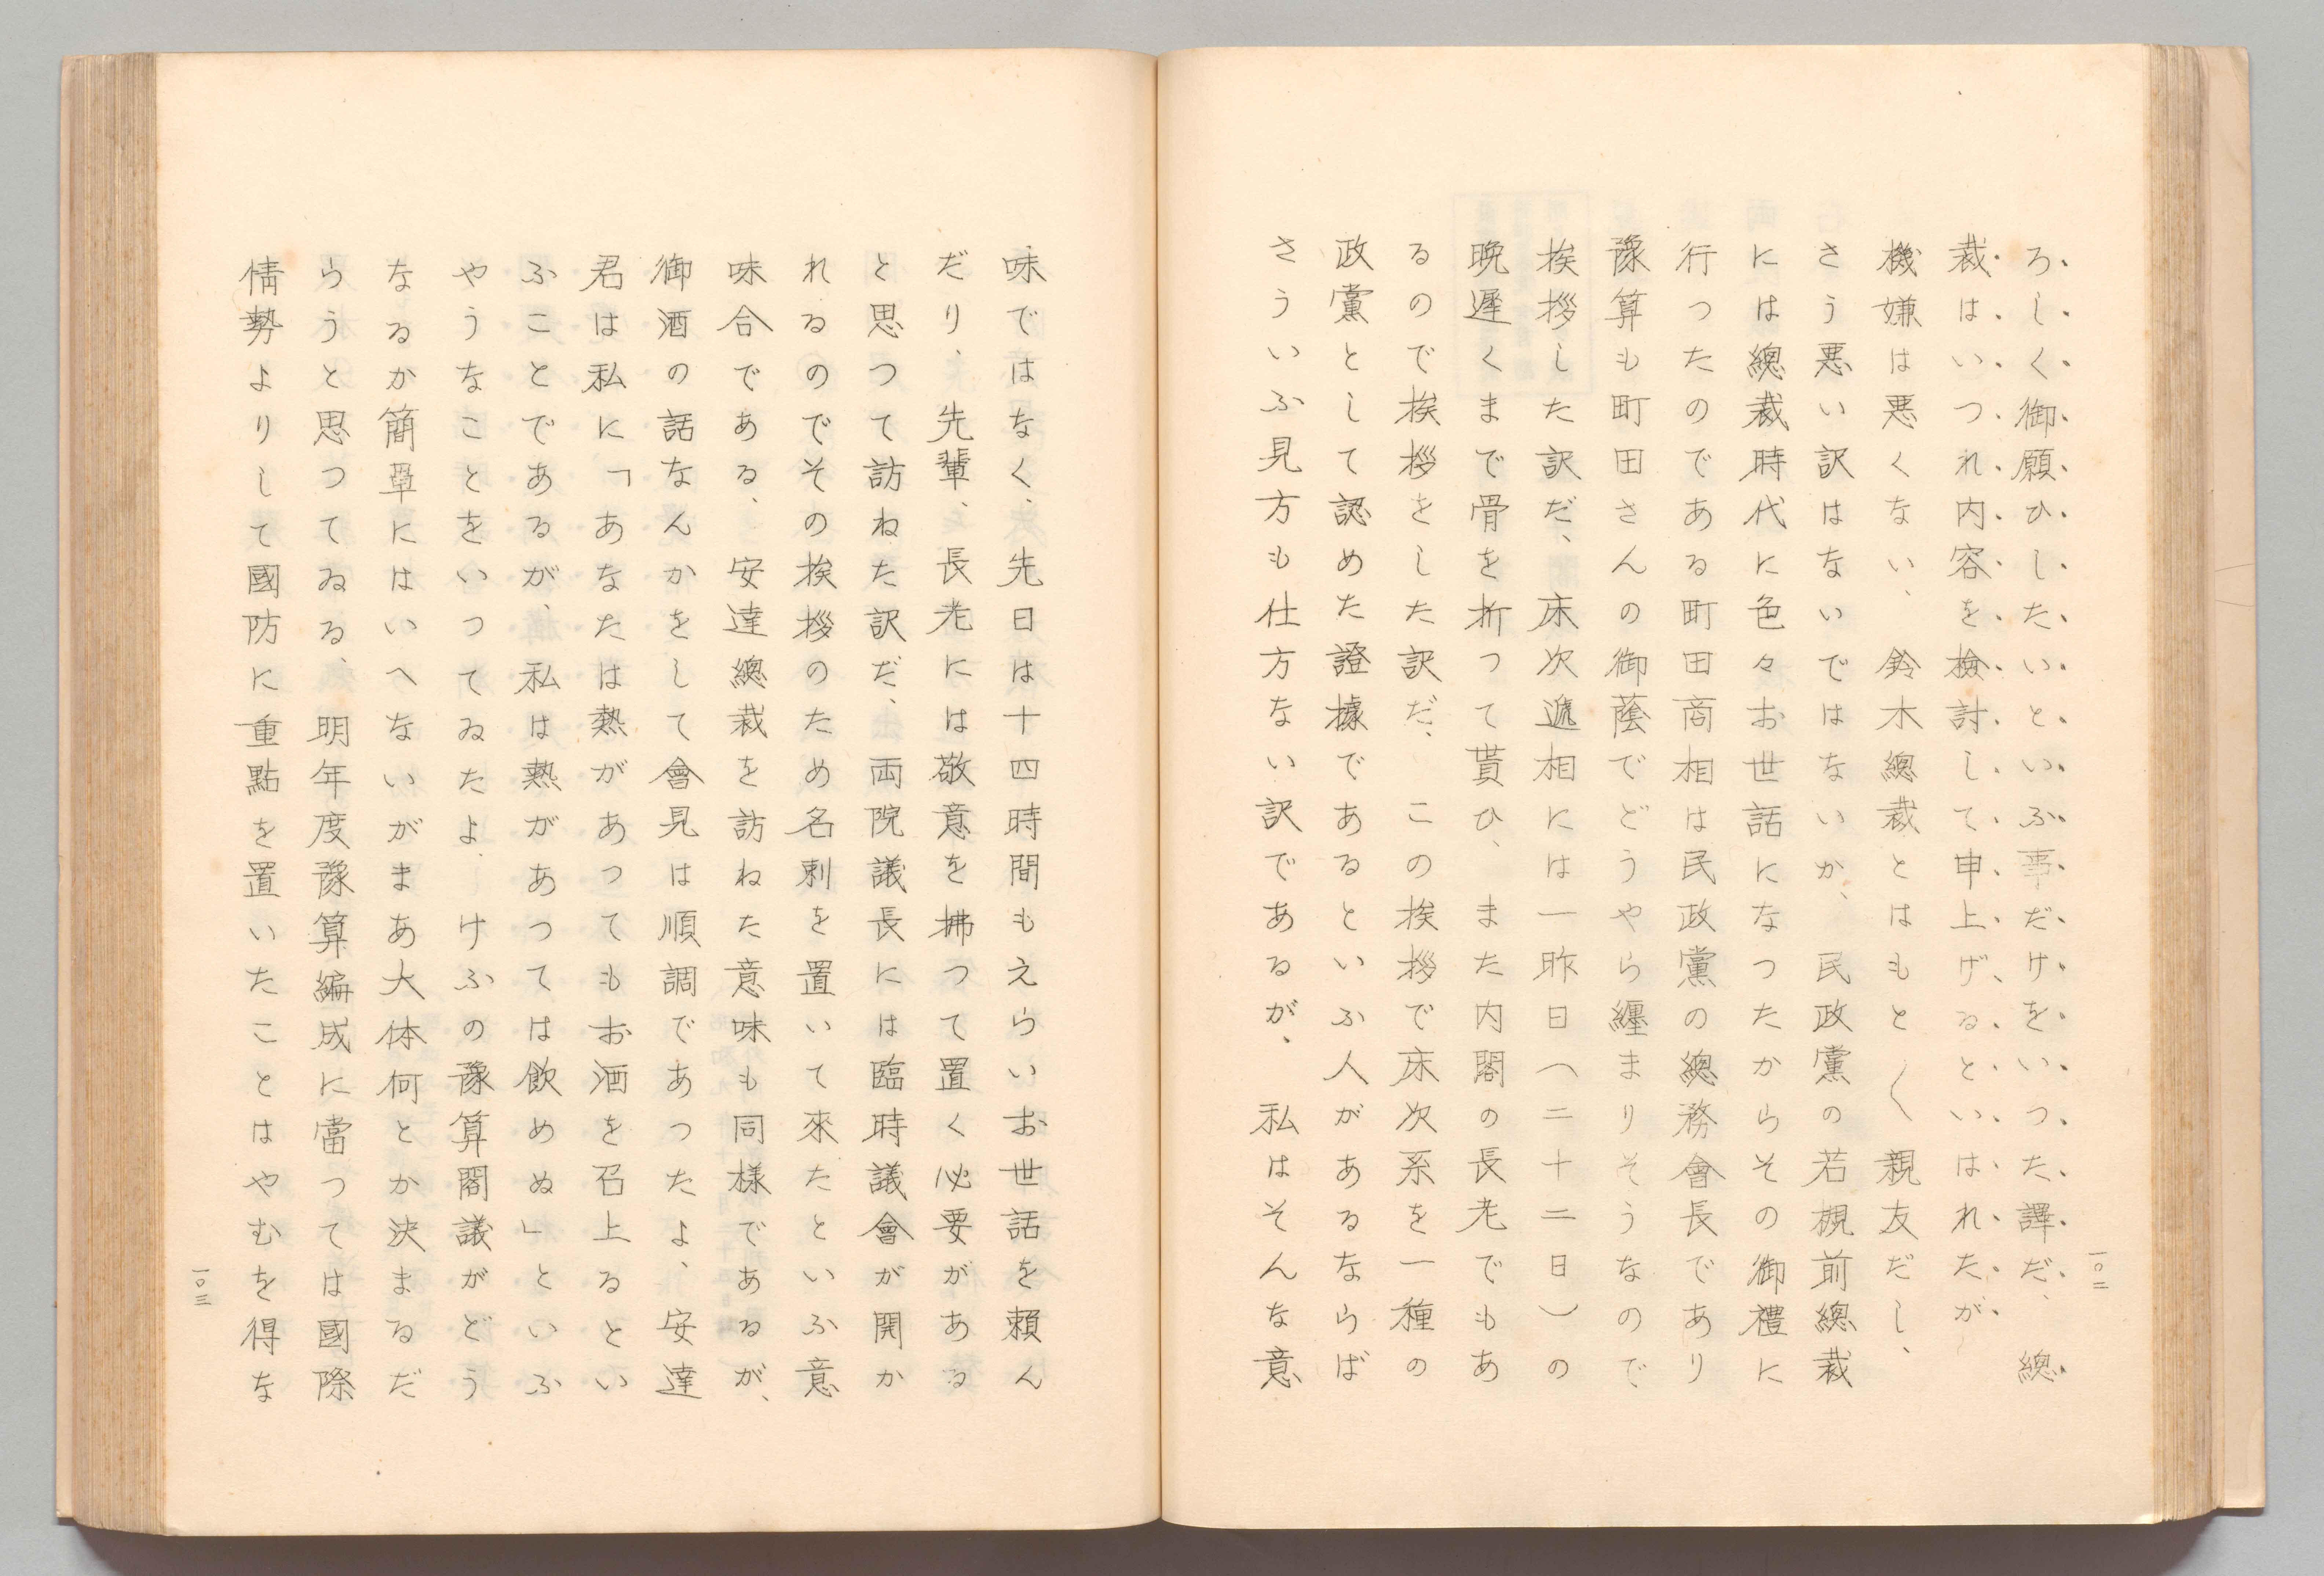 ろしく御願ひしたいといふ事だけをいつた譯だ、總
裁はいつれ内容を檢討して申上げるといはれたが
機嫌は悪くない、鈴木總裁とはもと〱親友だし、
さう悪い訳はないではないか、民政黨の若槻前總裁
には總裁時代に色々お世話になつたからその御禮に
行つたのである町田商相は民政黨の總務會長であり
豫算も町田さんの御蔭でどうやら纒まりそうなので
挨拶した訳だ、床次遞相には一昨日(二十二日)の
晩遲くまで骨を折つて貰ひ、また内閣の長老でもあ
るので挨拶をした訳だ、この挨拶で床次系を一種の
政黨として認めた證據であるといふ人があるならば
さういふ見方も仕方ない訳であるが、私はそんな意
一〇二
味ではなく、先日は十四時間もえらいお世話を頼ん
だり、先輩、長老には敬意を拂つて置く必要がある
と思つて訪ねた訳だ、両院議長には臨時議會が開か
れるのでその挨拶のため名剌を置いて來たといふ意
味合である、安達總裁を訪ねた意味も同様であるが、
御酒の話なんかをして會見は順調であつたよ、安達
君は私に「あなたは熱があつてもお酒を召上るとい
ふことであるが、私は熱があつては飲めぬ」といふ
やうなことをいつてゐたよ、けふの豫算閣議がどう
なるか簡單にはいへないがまあ大体何とか決まるだ
らうと思つてゐる、明年度豫算編成に當つては國際
情勢よりして國防に重點を置いたことはやむを得な
一〇三